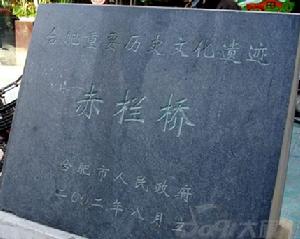 合肥重要历史文化遗迹
赤栏桥
合肥市人民政府
二〇〇二年八月立